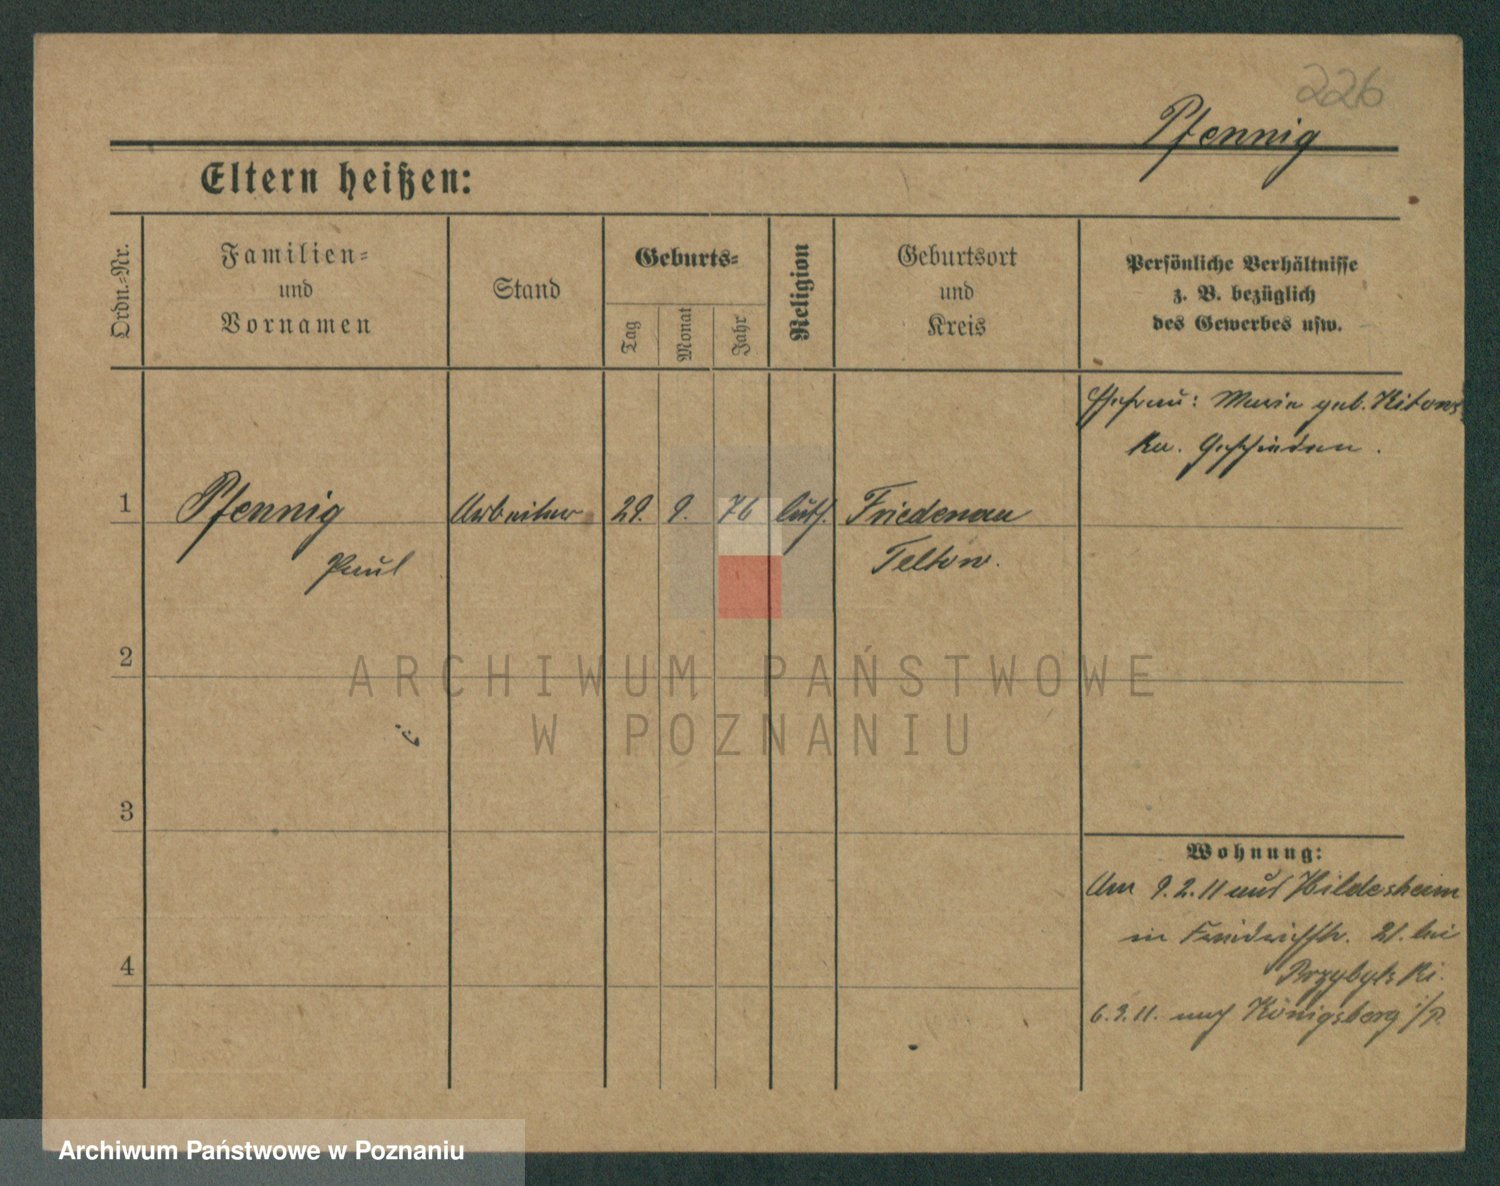 226
Pfennig
Eltern heißen:
Ordn.=Nr.
Familien=
und
Vornamen
Stand
Geburts=
Tag
Monat
Jahr
Religion
Geburtsort
und
Kreis
Persönliche Verhältnisse
z. B. bezüglich
des Gewerbes usw.
Ehefrau: Marie geb. Kitows
ka. Geschieden.
1
Pfennig
Arbeiter
29. 9. 76
luth.
Friedenau
Paul
Teltow.
2
ARCHIWUM PAŃSTWOWE
W POZNANIU
3
Wohnung:
Am 9.2.11 aus Hildesheim
in Friedrichstr. 21. bei
Przybylski.
4
6.3.11. nach Königsberg i/P.
Archiwum Państwowe w Poznaniu